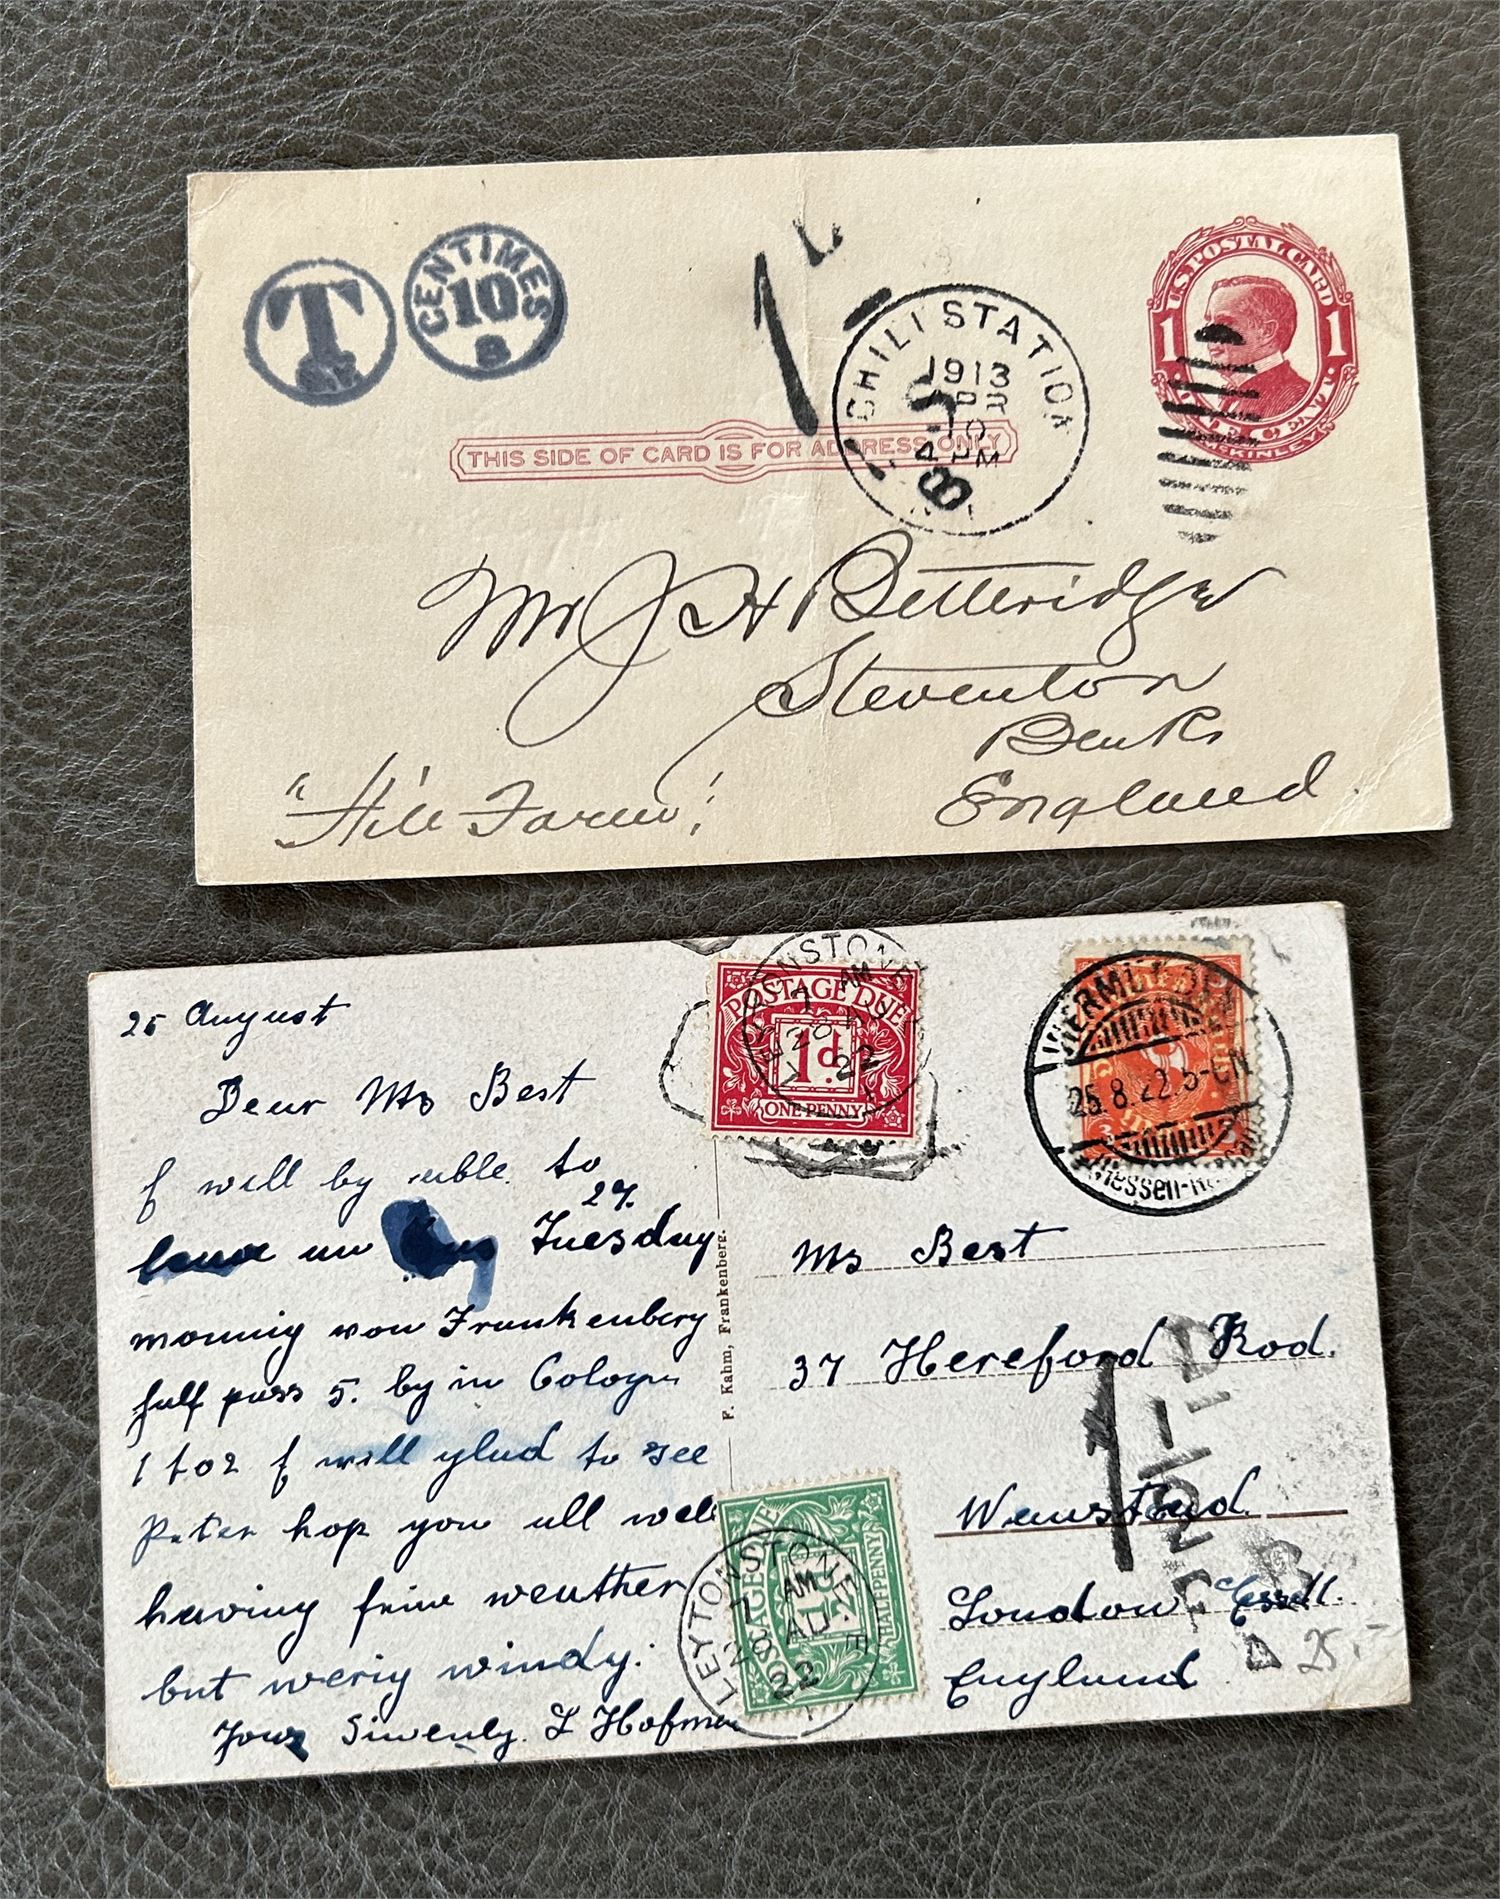 T
CENTIMES
10
8
1
CHILI STATION
1913
APR
PM
U.S. POSTAL CARD
1 1
ONE CENT
McKINLEY
THIS SIDE OF CARD IS FOR ADDRESS ONLY
Mr J H Betteridge
Steventon
Berks
England
"Hill Farm"
25 August
Dear Ms Best
I will by able to
27.
leave on Tuesday
morning von Frankenberg
half pass 5. by in Cologne
1 to 2 I will glad to see
Peter hop you all well
having fine weather
but weriy windy.
Yours Sincerely. L Hofman
F. Kahm, Frankenberg.
POSTAGE DUE
1d.
ONE PENNY
LEYTONSTONE
7 AM
28 AU
22
25.8.22.5-6N
Ms Best
37 Hereford Rod.
Wanstead
London Essex.
England
25.-
POSTAGE DUE
½
HALFPENNY
LEYTONSTONE
7 AM
28 AU
22